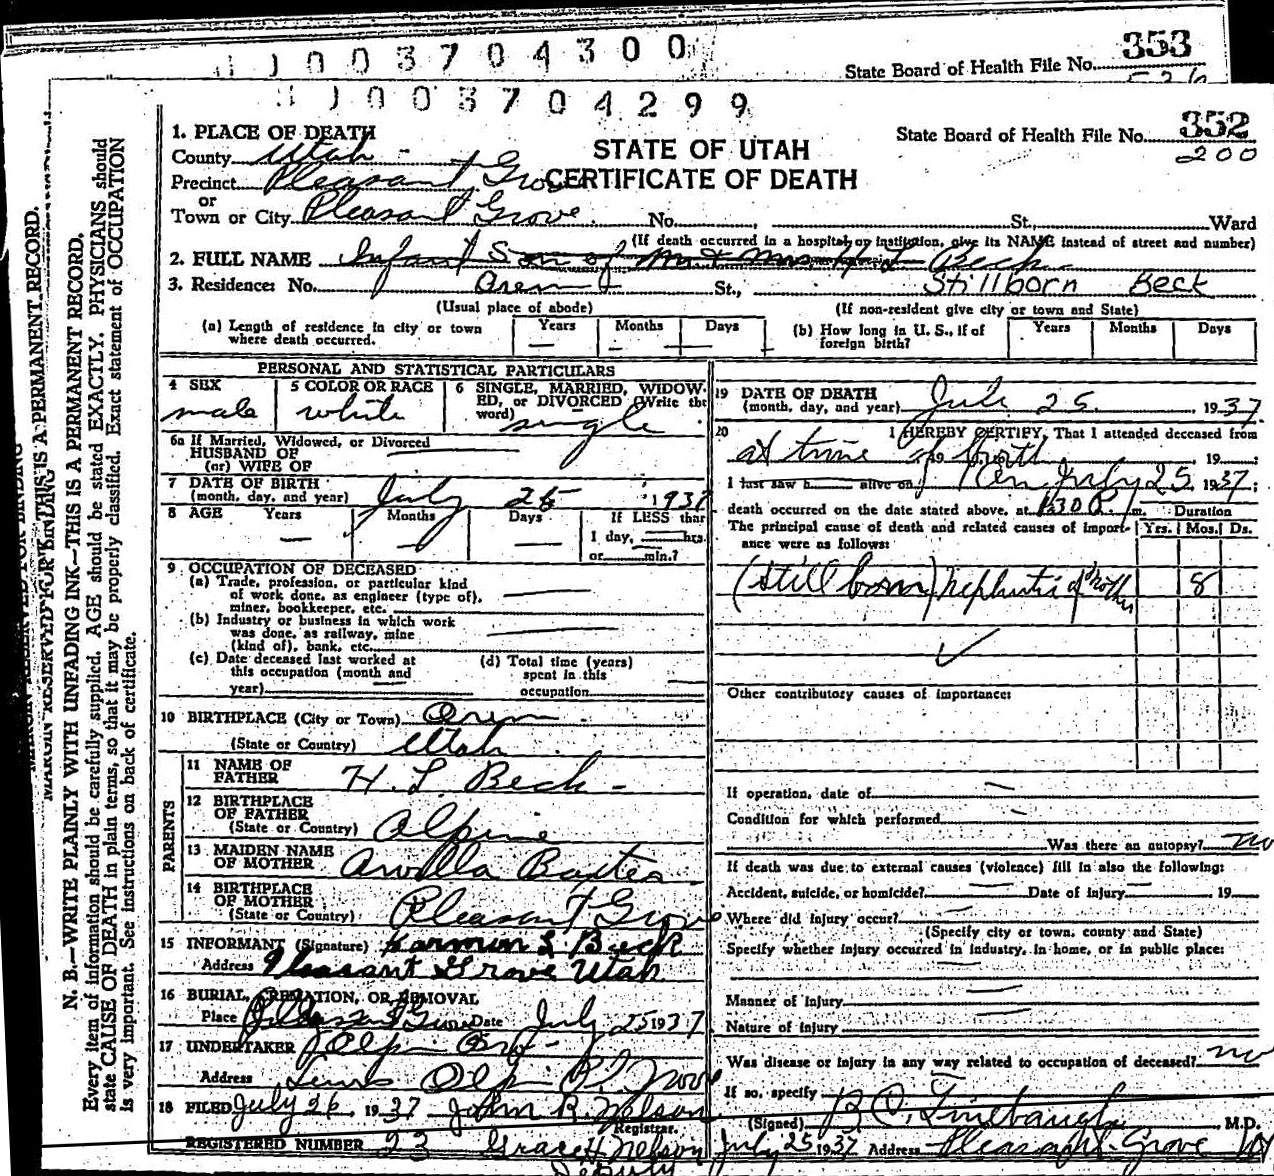 0 0 3 7 0 4 3 0 0
State Board of Health File No. 353
0 0 3 7 0 4 2 9 9
State Board of Health File No. 352
200
STATE OF UTAH
CERTIFICATE OF DEATH
1. PLACE OF DEATH
County Utah
Precinct Pleasant Grove
or
Town or City Pleasant Grove No. St., Ward
(If death occurred in a hospital or institution, give its NAME instead of street and number)
2. FULL NAME Infant Son of Mr & Mrs. H L Beck
Stillborn Beck
3. Residence: No. Orem St.,
(Usual place of abode) (If non-resident give city or town and State)
(a) Length of residence in city or town where death occurred. Years Months Days
(b) How long in U. S., if of foreign birth? Years Months Days
PERSONAL AND STATISTICAL PARTICULARS
4 SEX male
5 COLOR OR RACE white
6 SINGLE, MARRIED, WIDOWED, or DIVORCED (Write the word) single
6a If Married, Widowed, or Divorced
HUSBAND OF
(or) WIFE OF
7 DATE OF BIRTH
(month, day, and year) July 25 1937
8 AGE Years Months Days If LESS than
1 day, hrs.
or min.?
9 OCCUPATION OF DECEASED
(a) Trade, profession, or particular kind
of work done, as engineer (type of),
miner, bookkeeper, etc.
(b) Industry or business in which work
was done, as railway, mine
(kind of), bank, etc.
(c) Date deceased last worked at
this occupation (month and
year)
(d) Total time (years)
spent in this
occupation
10 BIRTHPLACE (City or Town) Orem
(State or Country) Utah
PARENTS
11 NAME OF
FATHER H. L. Beck
12 BIRTHPLACE
OF FATHER
(State or Country) Alpine
13 MAIDEN NAME
OF MOTHER Arvilla Baxter
14 BIRTHPLACE
OF MOTHER
(State or Country) Pleasant Grove
15 INFORMANT (Signature) L Beck
Address Pleasant Grove Utah
16 BURIAL, CREMATION, OR REMOVAL
Place Pleasant Grove Date July 25 1937
17 UNDERTAKER Olpin
Address Olpin Pl Grove
18 FILED July 26, 1937 John R. Nelson
Registrar.
REGISTERED NUMBER 23 Grace H Nelson
Deputy
19 DATE OF DEATH
(month, day, and year) July 25, 1937
20 I HEREBY CERTIFY, That I attended deceased from
at time of birth 19 19
I last saw h alive on July 25, 1937;
death occurred on the date stated above, at 1:30 P. m. Duration
The principal cause of death and related causes of importance were as follows: Yrs. Mos. Ds.
(still born) Nephritis of Mother 8
Other contributory causes of importance:
If operation, date of
Condition for which performed
Was there an autopsy? no
If death was due to external causes (violence) fill in also the following:
Accident, suicide, or homicide? Date of injury 19
Where did injury occur?
(Specify city or town, county and State)
Specify whether injury occurred in industry, in home, or in public place:
Manner of Injury
Nature of injury
Was disease or injury in any way related to occupation of deceased? no
If so, specify
(Signed) M.D.
July 25 1937 Address Pleasant Grove
MARGIN RESERVED FOR BINDING
THIS IS A PERMANENT RECORD.
N. B.—WRITE PLAINLY WITH UNFADING INK—THIS IS A PERMANENT RECORD.
Every item of information should be carefully supplied. AGE should be stated EXACTLY. PHYSICIANS should
state CAUSE OF DEATH in plain terms, so that it may be properly classified. Exact statement of OCCUPATION
is very important. See instructions on back of certificate.